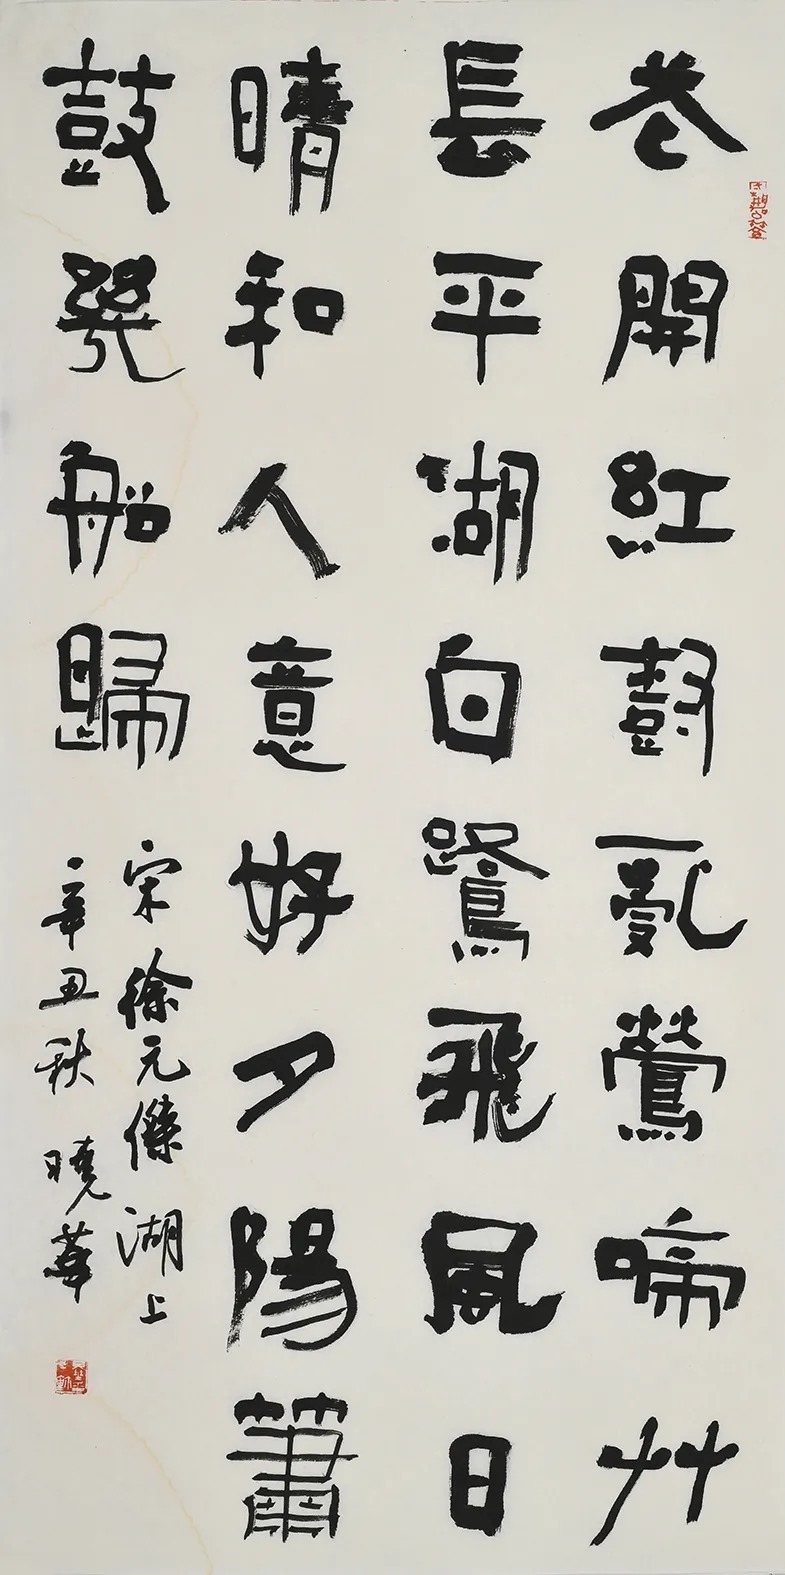 花開紅樹亂鶯啼艸
長平湖白鷺飛風日
晴和人意好夕陽簫
鼓幾船歸
宋徐元傑湖上
辛丑秋 曉華